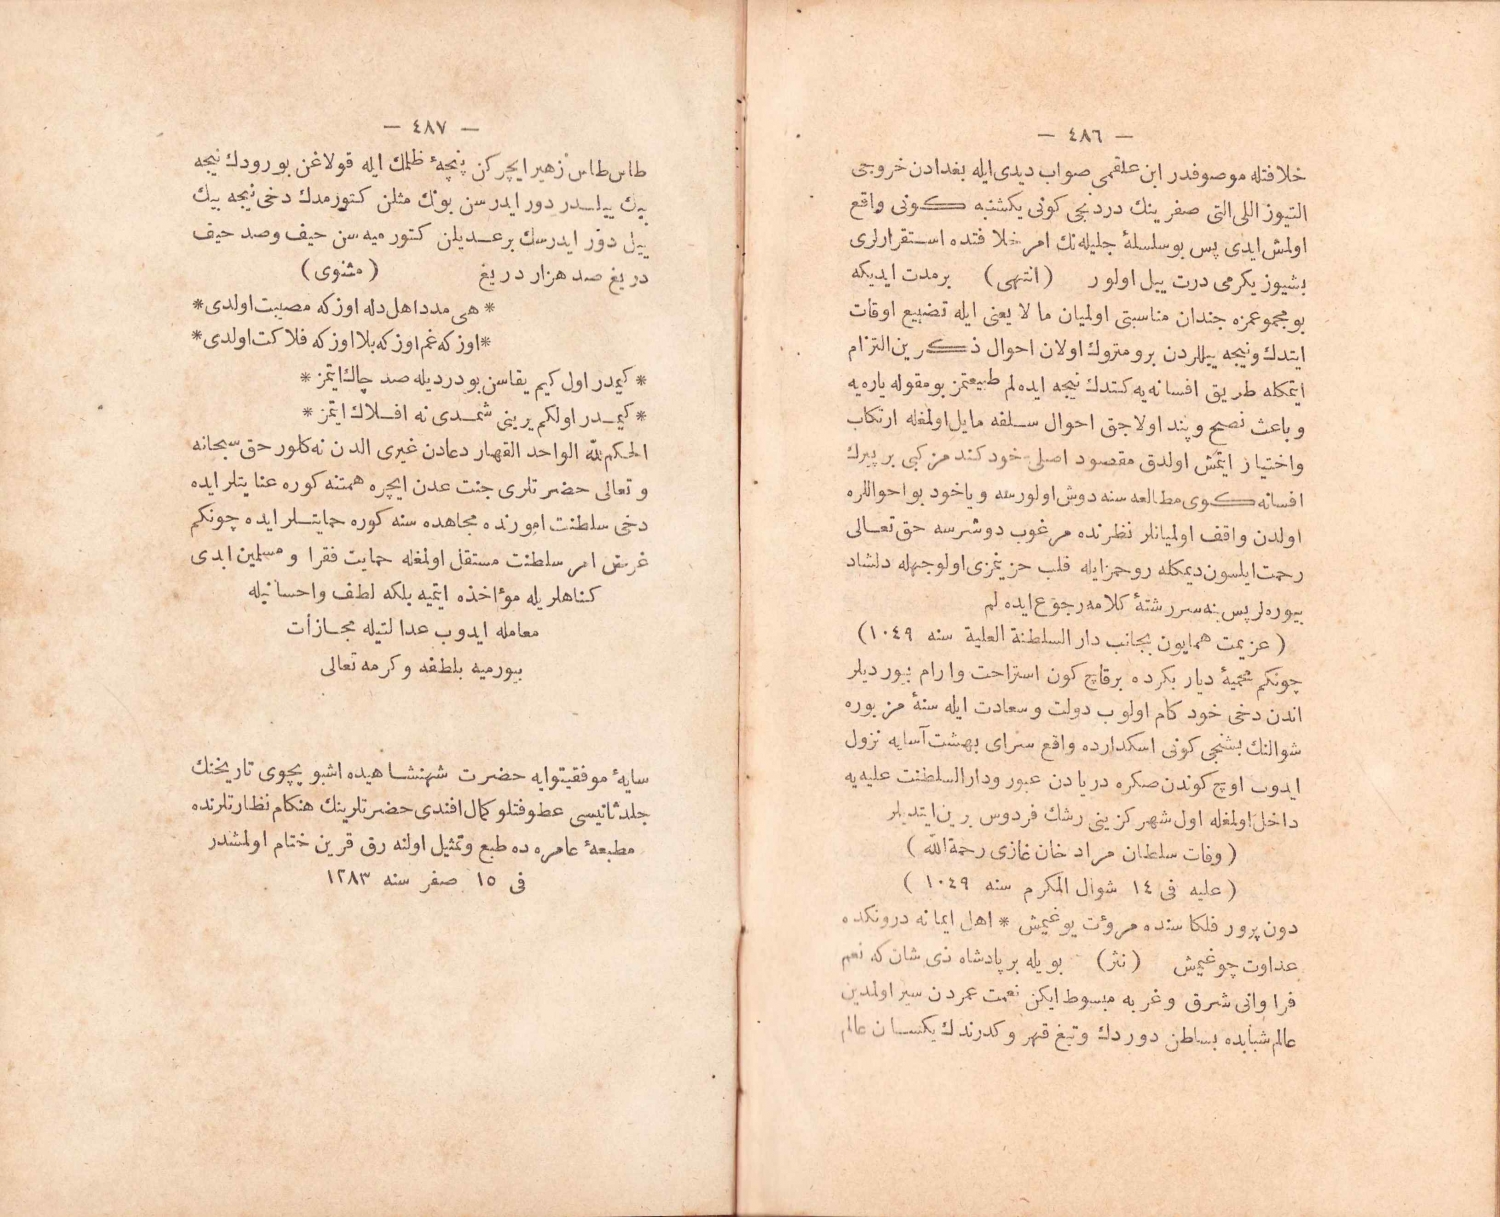 — ٤٨٦ —
خلافتله موصوفدر ابن علقمی صواب دیدی ایله بغداددن خروجی
التیوز اللی التی صفرینك دردنجی کونی یکشنبه کونی واقع
اولمش ایدی پس بو سلسلهٔ جلیله نك امر خلافتده استقرارلری
بشیوز یکرمی درت ییل اولور (انتهی) برمدت ایدیکه
بو مجموعمزه چندان مناسبتی اولمیان ما لا یعنی ایله تضییع اوقات
ایتدك ونیجه ییللردن برو متروك اولان احوال ذکرین التزام
ایتمکله طریق افسانه یه کتدك نیجه ایده لم طبیعتمز بو مقوله یاره یه
وباعث نصح وپند اولاجق احوال سلفه مایل اولمغله ارتکاب
واختیار ایتمش اولدق مقصود اصلی خود کندمز کبی بر پیرك
افسانه کوی مطالعه سنه دوش اولورسه ویاخود بو احوالره
اولدن واقف اولمیانلر نظرنده مرغوب دوشرسه حق تعالی
رحمت ایلسون دیمکله روحمز ایله قلب حزینمزی اول وجهله دلشاد
بیوره لر پس ینه سررشتهٔ کلامه رجوع ایده لم
(عزیمت همایون بجانب دار السلطنة العلیة سنه ١٠٤٩)
چونکم محمیهٔ دیار بکرده برقاچ کون استراحت وارام بیوردیلر
اندن دخی خودکام اولوب دولت وسعادت ایله سنهٔ مزبوره
شوالنك بشنجی کونی اسکدارده واقع سرای بهشت آسایه نزول
ایدوب اوچ کوندن صکره دریادن عبور ودار السلطنت علیه یه
داخل اولمغله اول شهر کزینی رشك فردوس برین ایتدیلر
(وفات سلطان مراد خان غازی رحمة الله)
(علیه فی ١٤ شوال المکرم سنه ١٠٤٩)
دون پرور فلکا سنده مرؤت یوغیمش * اهل ایمانه درونکده
عداوت چوغیمش (نثر) بویله بر پادشاه ذی شان که نعم
فراوانی شرق وغربه مبسوط ایکن نعمت عمردن سیر اولمدین
عالم شبابده بساطن دوردك وتیغ قهر وکدرندك یکسان عالم
— ٤٨٧ —
طاس طاس زهیر ایچرکن پنچهٔ ظلمك ایله قولاغن بورودك نیجه
بیك ییلدر دور ایدرسن بونك مثلن کتورمدك دخی نیجه بیك
ییل دور ایدرسك برعدیلن کتورمیه سن حیف وصد حیف
دریغ صد هزار دریغ (مثنوی)
* هی مدد اهل دله اوزکه مصیبت اولدی *
* اوزکه غم اوزکه بلا اوزکه فلاکت اولدی *
* کیمدر اول کیم یقاسن بو دردیله صد چاك ایتمز *
* کیمدر اولکم یرینی شمدی نه افلاك ایتمز *
الحکم لله الواحد القهار دعادن غیری الدن نه کلور حق سبحانه
وتعالی حضرتلری جنت عدن ایچره همتنه کوره عنایتلر ایده
دخی سلطنت امورنده مجاهده سنه کوره حمایتلر ایده چونکم
غرض امر سلطنت مستقل اولمغله حمایت فقرا و مسلمین ایدی
کناهلریله مؤاخذه ایتمیه بلکه لطف واحسانیله
معامله ایدوب عدالتیله مجازأت
بیورمیه بلطفه وکرمه تعالی
سایهٔ موفقیتوایه حضرت شهنشاهیده اشبو پچوی تاریخنك
جلد ثانیسی عطوفتلو کمال افندی حضرتلرینك هنکام نظارتلرنده
مطبعهٔ عامره ده طبع وتمثیل اولنه رق قرین ختام اولمشدر
فی ١٥ صفر سنه ١٢٨٣